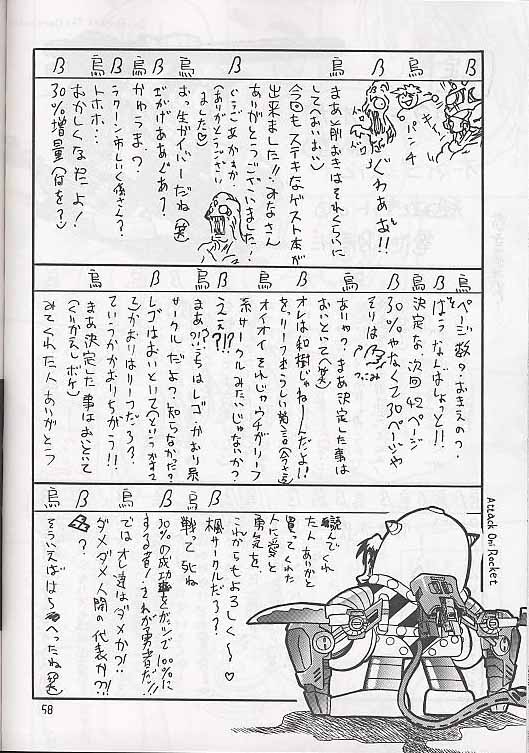 β
ぐわああお!!
パンチ
烏
まあと前おきはそれくらいに
しておいおい
今回もステキなゲスト本が
出来ました!!みなさん
ありがとうございました!
β
(ありがとうござい
ました)
烏
おっ生ガイバーだね(笑)
β
烏
かゆうま?
β
ラクーン市しいく係さん?
烏
トホホ…
おかしくなったよ!
β
30%増量(何を?)
烏
ページ数?おまえの?
β
ばっなんばしょっと!!
烏
決定な、次回42ページ
β
30%やなくて30ページや
そりは
つっこみ
烏
ありゃ?まあ決定した事は
おいといて(笑)
β
オレは和樹じゃねーんだよ!!
烏
β
オイオイそれじゃウチがリーフ
系サークルみたいじゃないか?
烏
ええ?!?!
β
まあ?!うちはレゴかおり系
サークルだよ?知らなかった?
烏
レゴはおいといて
かおりはリーフだろ?
β
ていうかかおりちがう!!
烏
まあ決定した事はおいといて
(くりかえしボケ)
みてくれた人ありがとう
読んでくれ
た人ありがと
買ってくれた
人に愛と
勇気を、
これからもよろしく〜♡
β
楓サークルだろ?
烏
戦って死ね
β
30%の成功率をガッツで100%に
する者!それが勇者だ!!
烏
ではオレ達はダメか?!
β
ダメダメ人間の代表か?!
?
烏
そういえばはらへったね(笑)
Attack On! Rocket
58